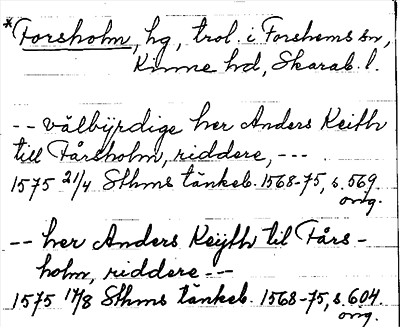 *Forsholm, hg, trol. i Forshems sn,
Kinne hd, Skarab. l.
-- välbyrdige her Anders Keith
till Fårsholm, riddere, ---
1575 21/4 Sthms tänkeb. 1568-75, s. 569
orig.
-- her Anders Keijth til Fårs-
holm, riddere --
1575 17/8 Sthms tänkeb. 1568-75, s. 604.
orig.